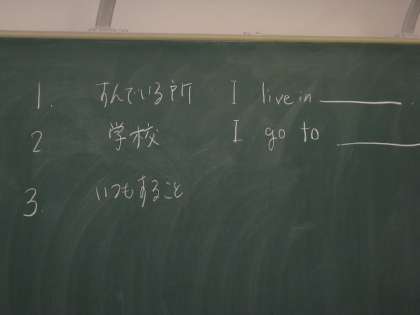 1. すんでいる所 I live in ______.
2 学校 I go to ______
3. いつもすること